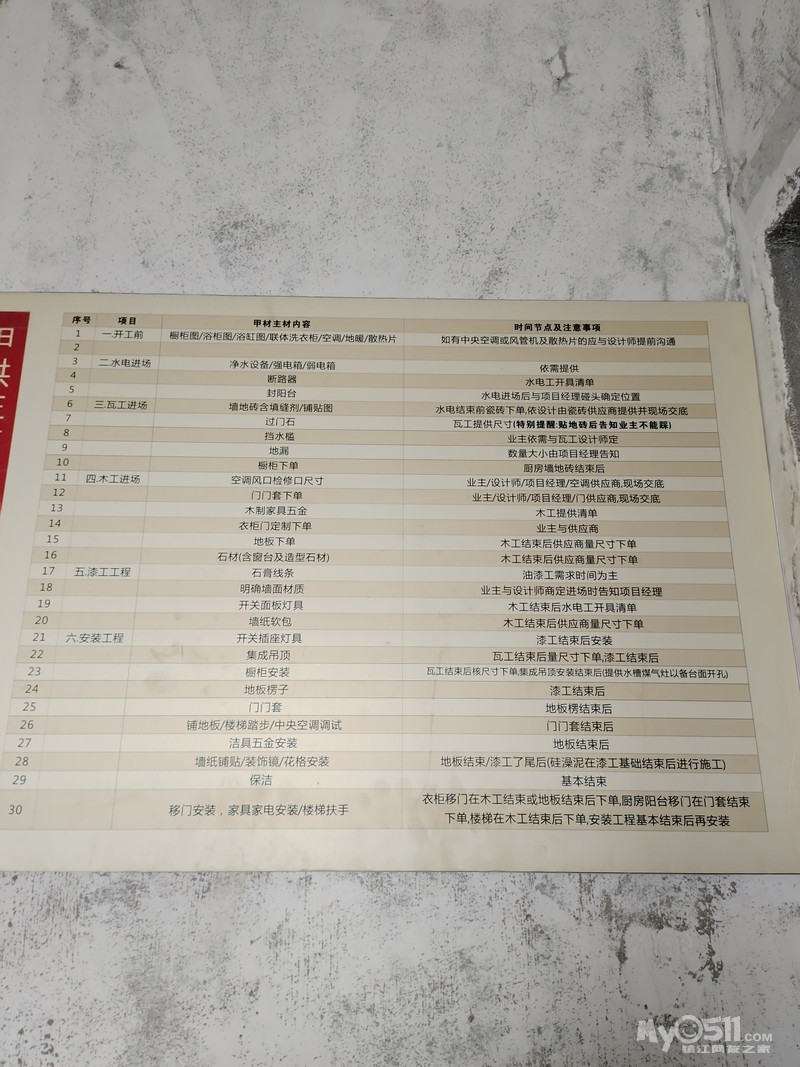 序号 项目 甲材主材内容 时间节点及注意事项
1 一.开工前 橱柜图/浴柜图/浴缸图/联体洗衣柜/空调/地暖/散热片 如有中央空调或风管机及散热片的应与设计师提前沟通
2
3 二.水电进场 净水设备/强电箱/弱电箱 依需提供
4 断路器 水电工开具清单
5 封阳台 水电进场后与项目经理碰头确定位置
6 三.瓦工进场 墙地砖含填缝剂/铺贴图 水电结束前瓷砖下单,依设计由瓷砖供应商提供并现场交底
7 过门石 瓦工提供尺寸(特别提醒:贴地砖后告知业主不能踩)
8 挡水槛 业主依需与瓦工设计师定
9 地漏 数量大小由项目经理告知
10 橱柜下单 厨房墙地砖结束后
11 四.木工进场 空调风口检修口尺寸 业主/设计师/项目经理/空调供应商,现场交底
12 门门套下单 业主/设计师/项目经理/门供应商,现场交底
13 木制家具五金 木工提供清单
14 衣柜门定制下单 业主与供应商
15 地板下单 木工结束后供应商量尺寸下单
16 石材(含窗台及造型石材) 木工结束后供应商量尺寸下单
17 五.漆工工程 石膏线条 油漆工需求时间为主
18 明确墙面材质 业主与设计师商定进场时告知项目经理
19 开关面板灯具 木工结束后水电工开具清单
20 墙纸软包 木工结束后供应商量尺寸下单
21 六.安装工程 开关插座灯具 漆工结束后安装
22 集成吊顶 瓦工结束后量尺寸下单,漆工结束后
23 橱柜安装 瓦工结束后核尺寸下单,集成吊顶安装结束后(提供水槽煤气灶以备台面开孔)
24 地板楞子 漆工结束后
25 门门套 地板楞结束后
26 铺地板/楼梯踏步/中央空调调试 门门套结束后
27 洁具五金安装 地板结束后
28 墙纸铺贴/装饰镜/花格安装 地板结束/漆工了尾后(硅澡泥在漆工基础结束后进行施工)
29 保洁 基本结束
30 移门安装，家具家电安装/楼梯扶手 衣柜移门在木工结束或地板结束后下单,厨房阳台移门在门套结束
下单,楼梯在木工结束后下单,安装工程基本结束后再安装
My0511.COM
镇江网友之家